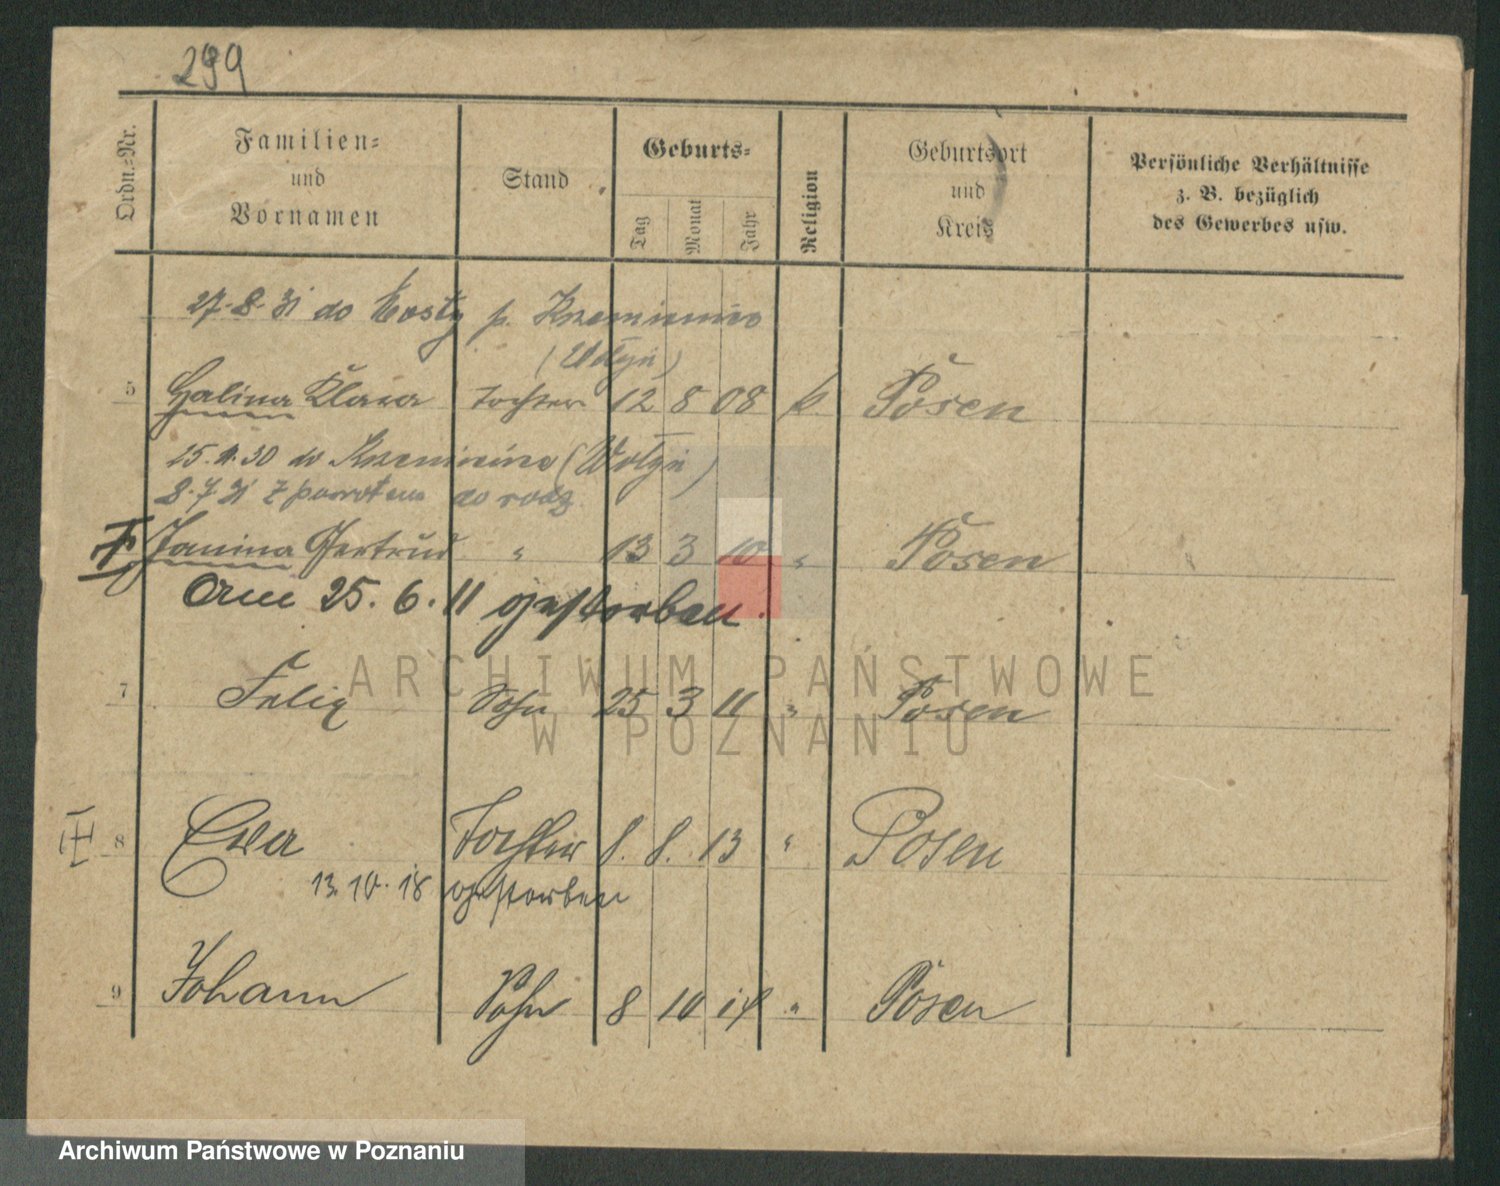 299
Ordn.-Nr. Familien- und Vornamen Stand Geburts- Tag Monat Jahr Religion Geburtsort und Kreis Persönliche Verhältnisse z. B. bezüglich des Gewerbes usw.
27.8.31 do p. Krzemieniec
(Wołyń)
5 Halina Klara Tochter 12 8 08 k. Posen
15. 30 do Krzemieniec (Wołyń)
8.7.31 z powrotem do rodz.
Janina Gertrud " 13 3 10 " Posen
Am 25.6.11 gestorben.
7 Felix Sohn 25 3 11 " Posen
8 Ewa Tochter 8. 8. 13 " Posen
13.10.18 gestorben
9 Johann Sohn 8 10 14 " Posen
ARCHIWUM PAŃSTWOWE
W POZNANIU
Archiwum Państwowe w Poznaniu